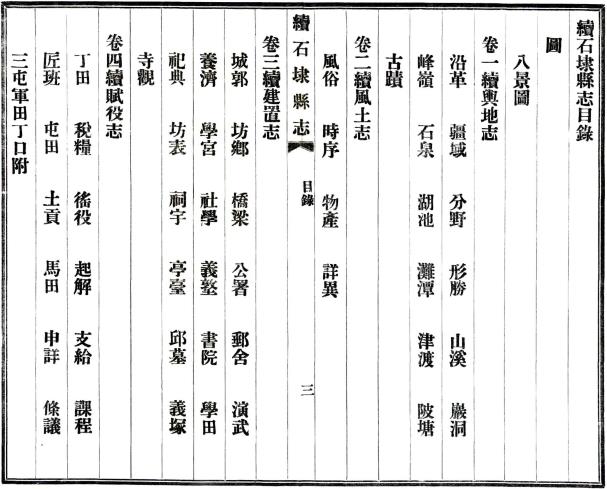 續石埭縣志目錄
圖
八景圖
卷一續輿地志
沿革 疆域 分野 形勝 山溪 巖洞
峰嶺 石泉 湖池 灘潭 津渡 陂塘
古蹟
卷二續風土志
風俗 時序 物產 詳異
續石埭縣志 目錄 三
卷三續建置志
城郭 坊鄉 橋梁 公署 郵舍 演武
養濟 學宮 社學 義塾 書院 學田
祀典 坊表 祠宇 亭臺 邱墓 義塚
寺觀
卷四續賦役志
丁田 稅糧 徭役 起解 支給 課程
匠班 屯田 土貢 馬田 申詳 條議
三屯軍田丁口附